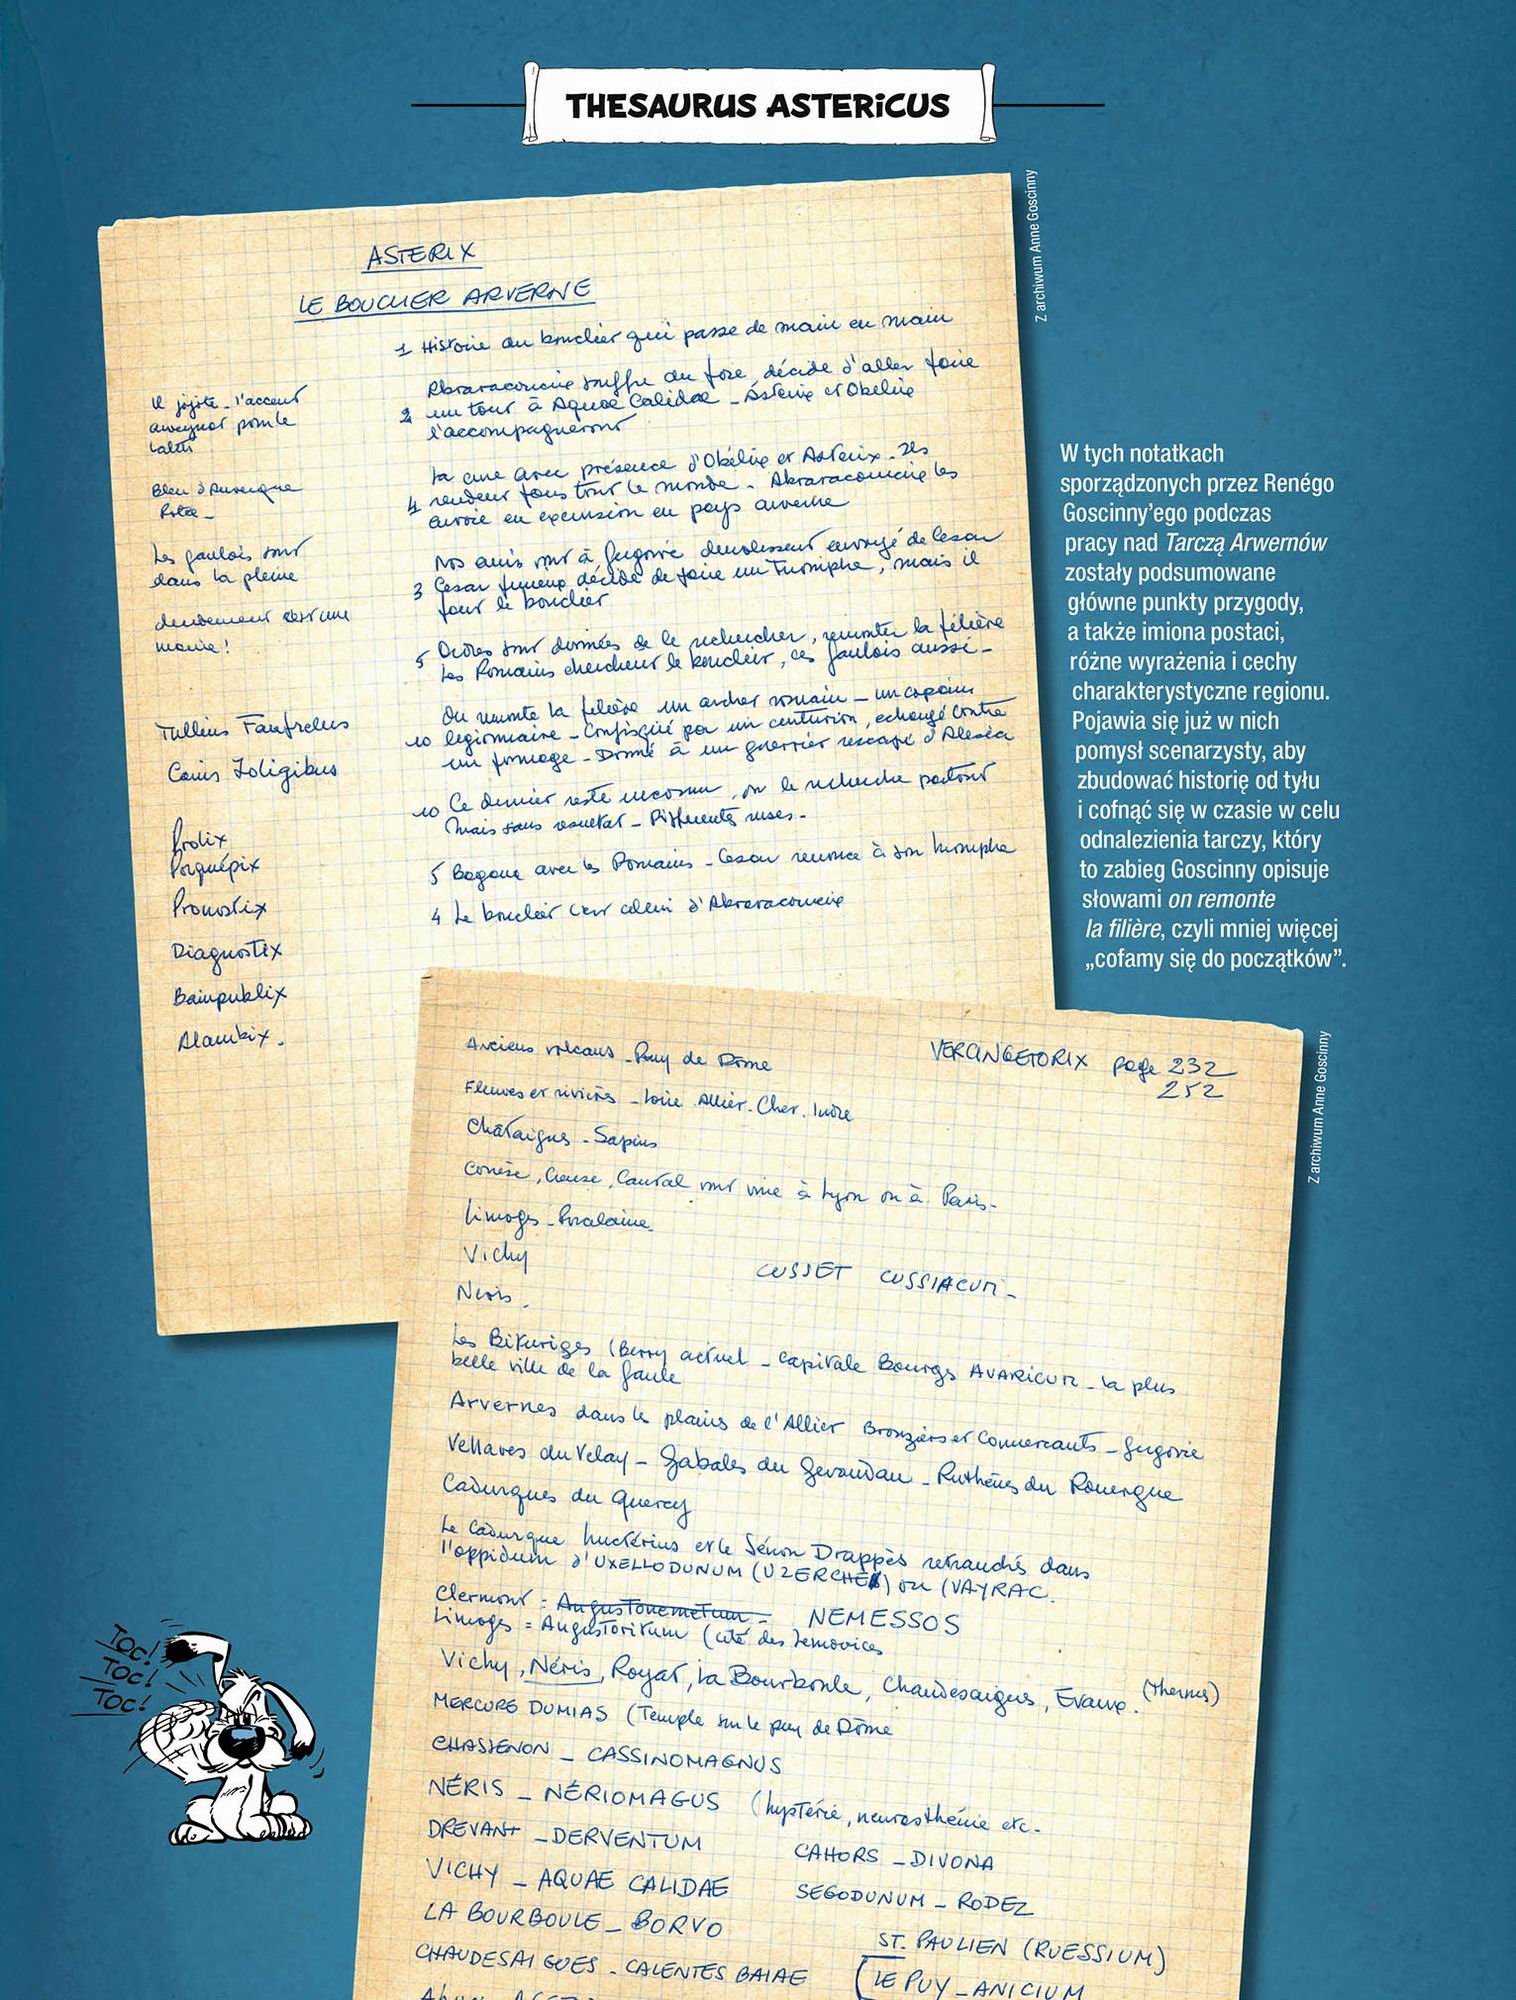 THESAURUS ASTERICUS
Z archiwum Anne Goscinny
ASTERIX
LE BOUCLIER ARVERNE
1 Histoire du bouclier qui passe de main en main
Abraracourcix souffre du foie, décide d'aller faire
2 un tour à Aquae Calidae - Astérix et Obélix
l'accompagneront
La cure avec présence d'Obélix et Astérix. Ils
4 rendent fous tout le monde - Abraracourcix les
envoie en excursion en pays arverne
Nos amis sont à Gergovie envoyé de Cesar
3 Cesar furieux décide de faire un Triomphe, mais il
faut le bouclier
5 Ordres sont donnés de le rechercher, remonter la filière
Les Romains cherchent le bouclier, les gaulois aussi -
On remonte la filière un archer romain - un copain
10 légionnaire - Confisqué par un centurion, echangé contre
un fromage - Donné à un guerrier rescapé d'Alésia
10 Ce dernier reste inconnu, on le recherche partout
Mais sans résultat - Différentes ruses -
5 Bagarre avec les Romains - Cesar renonce à son triomphe
4 Le bouclier c'est celui d'Abraracourcix
Il zozote - l'accent
auvergnat pour le
latin
Bleu d'Auvergne
Potée -
Les gaulois sont
dans la pleine
c'est une
manie!
Tullius Fanfrelus
Caius Joligibus
Prolix
Porquépix
Pronostix
Diagnostix
Bainpublix
Alambix.
W tych notatkach
sporządzonych przez Renégo
Goscinny’ego podczas
pracy nad Tarczą Arwernów
zostały podsumowane
główne punkty przygody,
a także imiona postaci,
różne wyrażenia i cechy
charakterystyczne regionu.
Pojawia się już w nich
pomysł scenarzysty, aby
zbudować historię od tyłu
i cofnąć się w czasie w celu
odnalezienia tarczy, który
to zabieg Goscinny opisuje
słowami on remonte
la filière, czyli mniej więcej
„cofamy się do początków”.
Z archiwum Anne Goscinny
Anciens volcans - Puy de Dôme
VERCINGETORIX page 232
252
Fleuves et rivières - Loire. Allier. Cher. Indre
Châtaignes - Sapins
Corrèze, Creuse, Cantal vont vivre à Lyon ou à Paris -
Limoges - Porcelaine
Vichy
CUSSET CUSSIACUM -
Néris.
Les Bituriges (Berry actuel - Capitale Bourges AVARICUM - la plus
belle ville de la Gaule
Arvernes dans les plaines de l'Allier Bronziers et Commercants - Gergovie
Vellaves du Velay - Gabales du Gevaudan - Ruthènes du Rouergue
Cadurques du Quercy
Le Cadurque Luctérius et le Sénon Drappès retranchés dans
l'oppidum d'UXELLODUNUM (UZERCHE) ou (VAYRAC.
Clermont = Augustonemetum - NEMESSOS
Limoges = Augustoritum (cité des Lemovices
Vichy, Néris, Royat, La Bourboule, Chaudesaigues, Evaux. (Thermes)
MERCURE DUMIAS (Temple sur le puy de Dôme
CHASSENON - CASSINOMAGNUS
NÉRIS - NÉRIOMAGUS (hystérie, neurasthénie etc -
DREVANT - DERVENTUM
CAHORS - DIVONA
VICHY - AQUAE CALIDAE
SEGODUNUM - RODEZ
LA BOURBOULE - BORVO
ST. PAULIEN (RUESSIUM)
CHAUDESAIGUES - CALENTES BAIAE
LE PUY - ANICIUM
TOC!
TOC!
TOC!